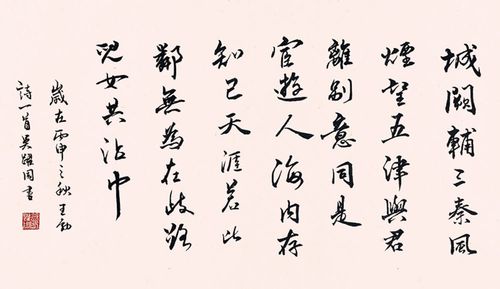 城闕輔三秦風
煙望五津與君
離別意同是
宦遊人海内存
知己天涯若比
鄰無為在歧路
兒女共沾巾
歲在丙申之秋王勃
詩一首吳書